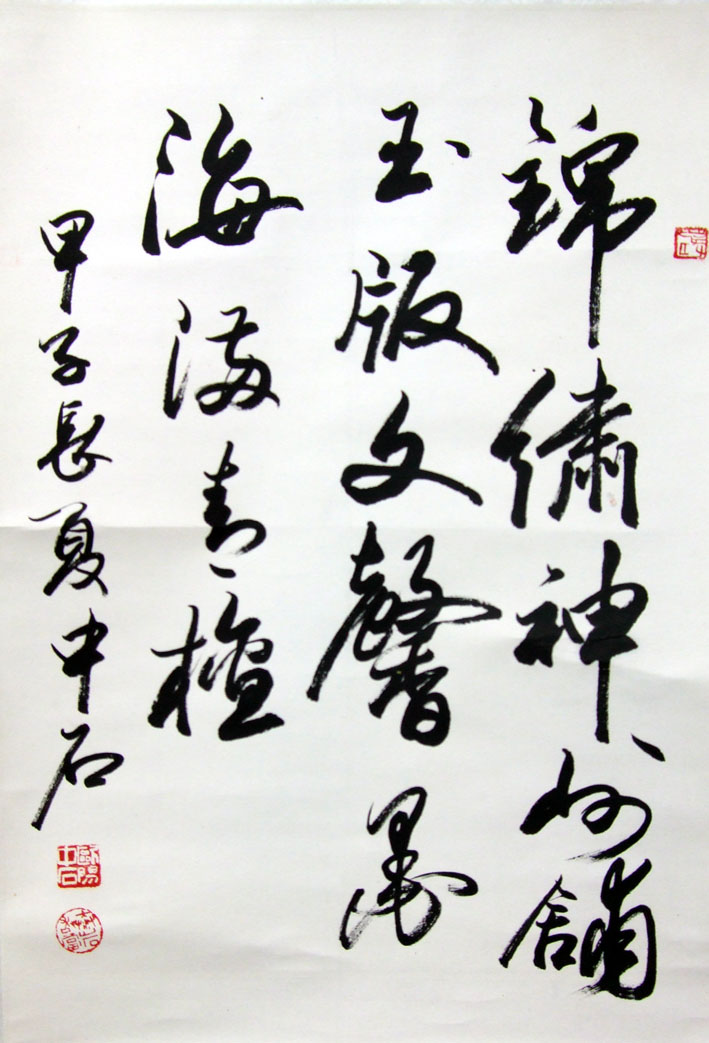 錦繡神州舖
玉版文馨墨
海滿青檀
甲子長夏中石
歐陽中石